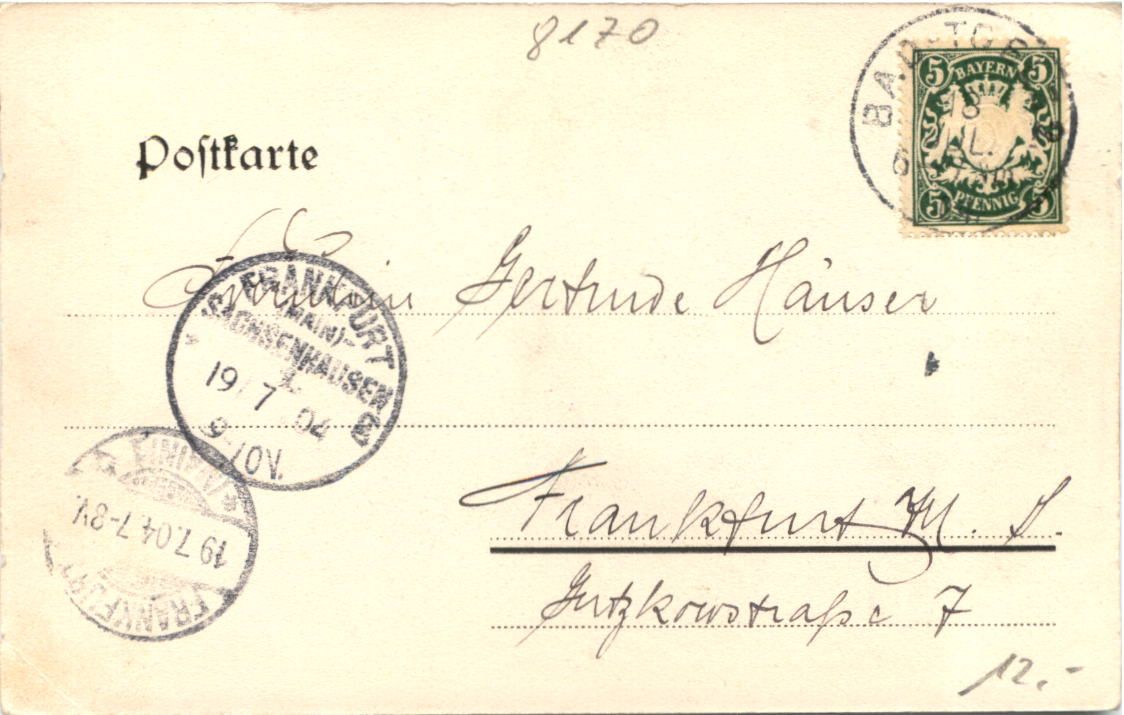 8170
BAD-TÖLZ
18
JUL.
04
5 BAYERN 5
5 PFENNIG 5
Postkarte
Fräulein Gertrude Häuser
FRANKFURT
(MAIN)-
SACHSENHAUSEN
1
19 7 04
9-10V.
Frankfurt M. S.
FRANKFURT (MAIN)
19.7.04.7-8V.
Gutzkowstraße 7
12.-